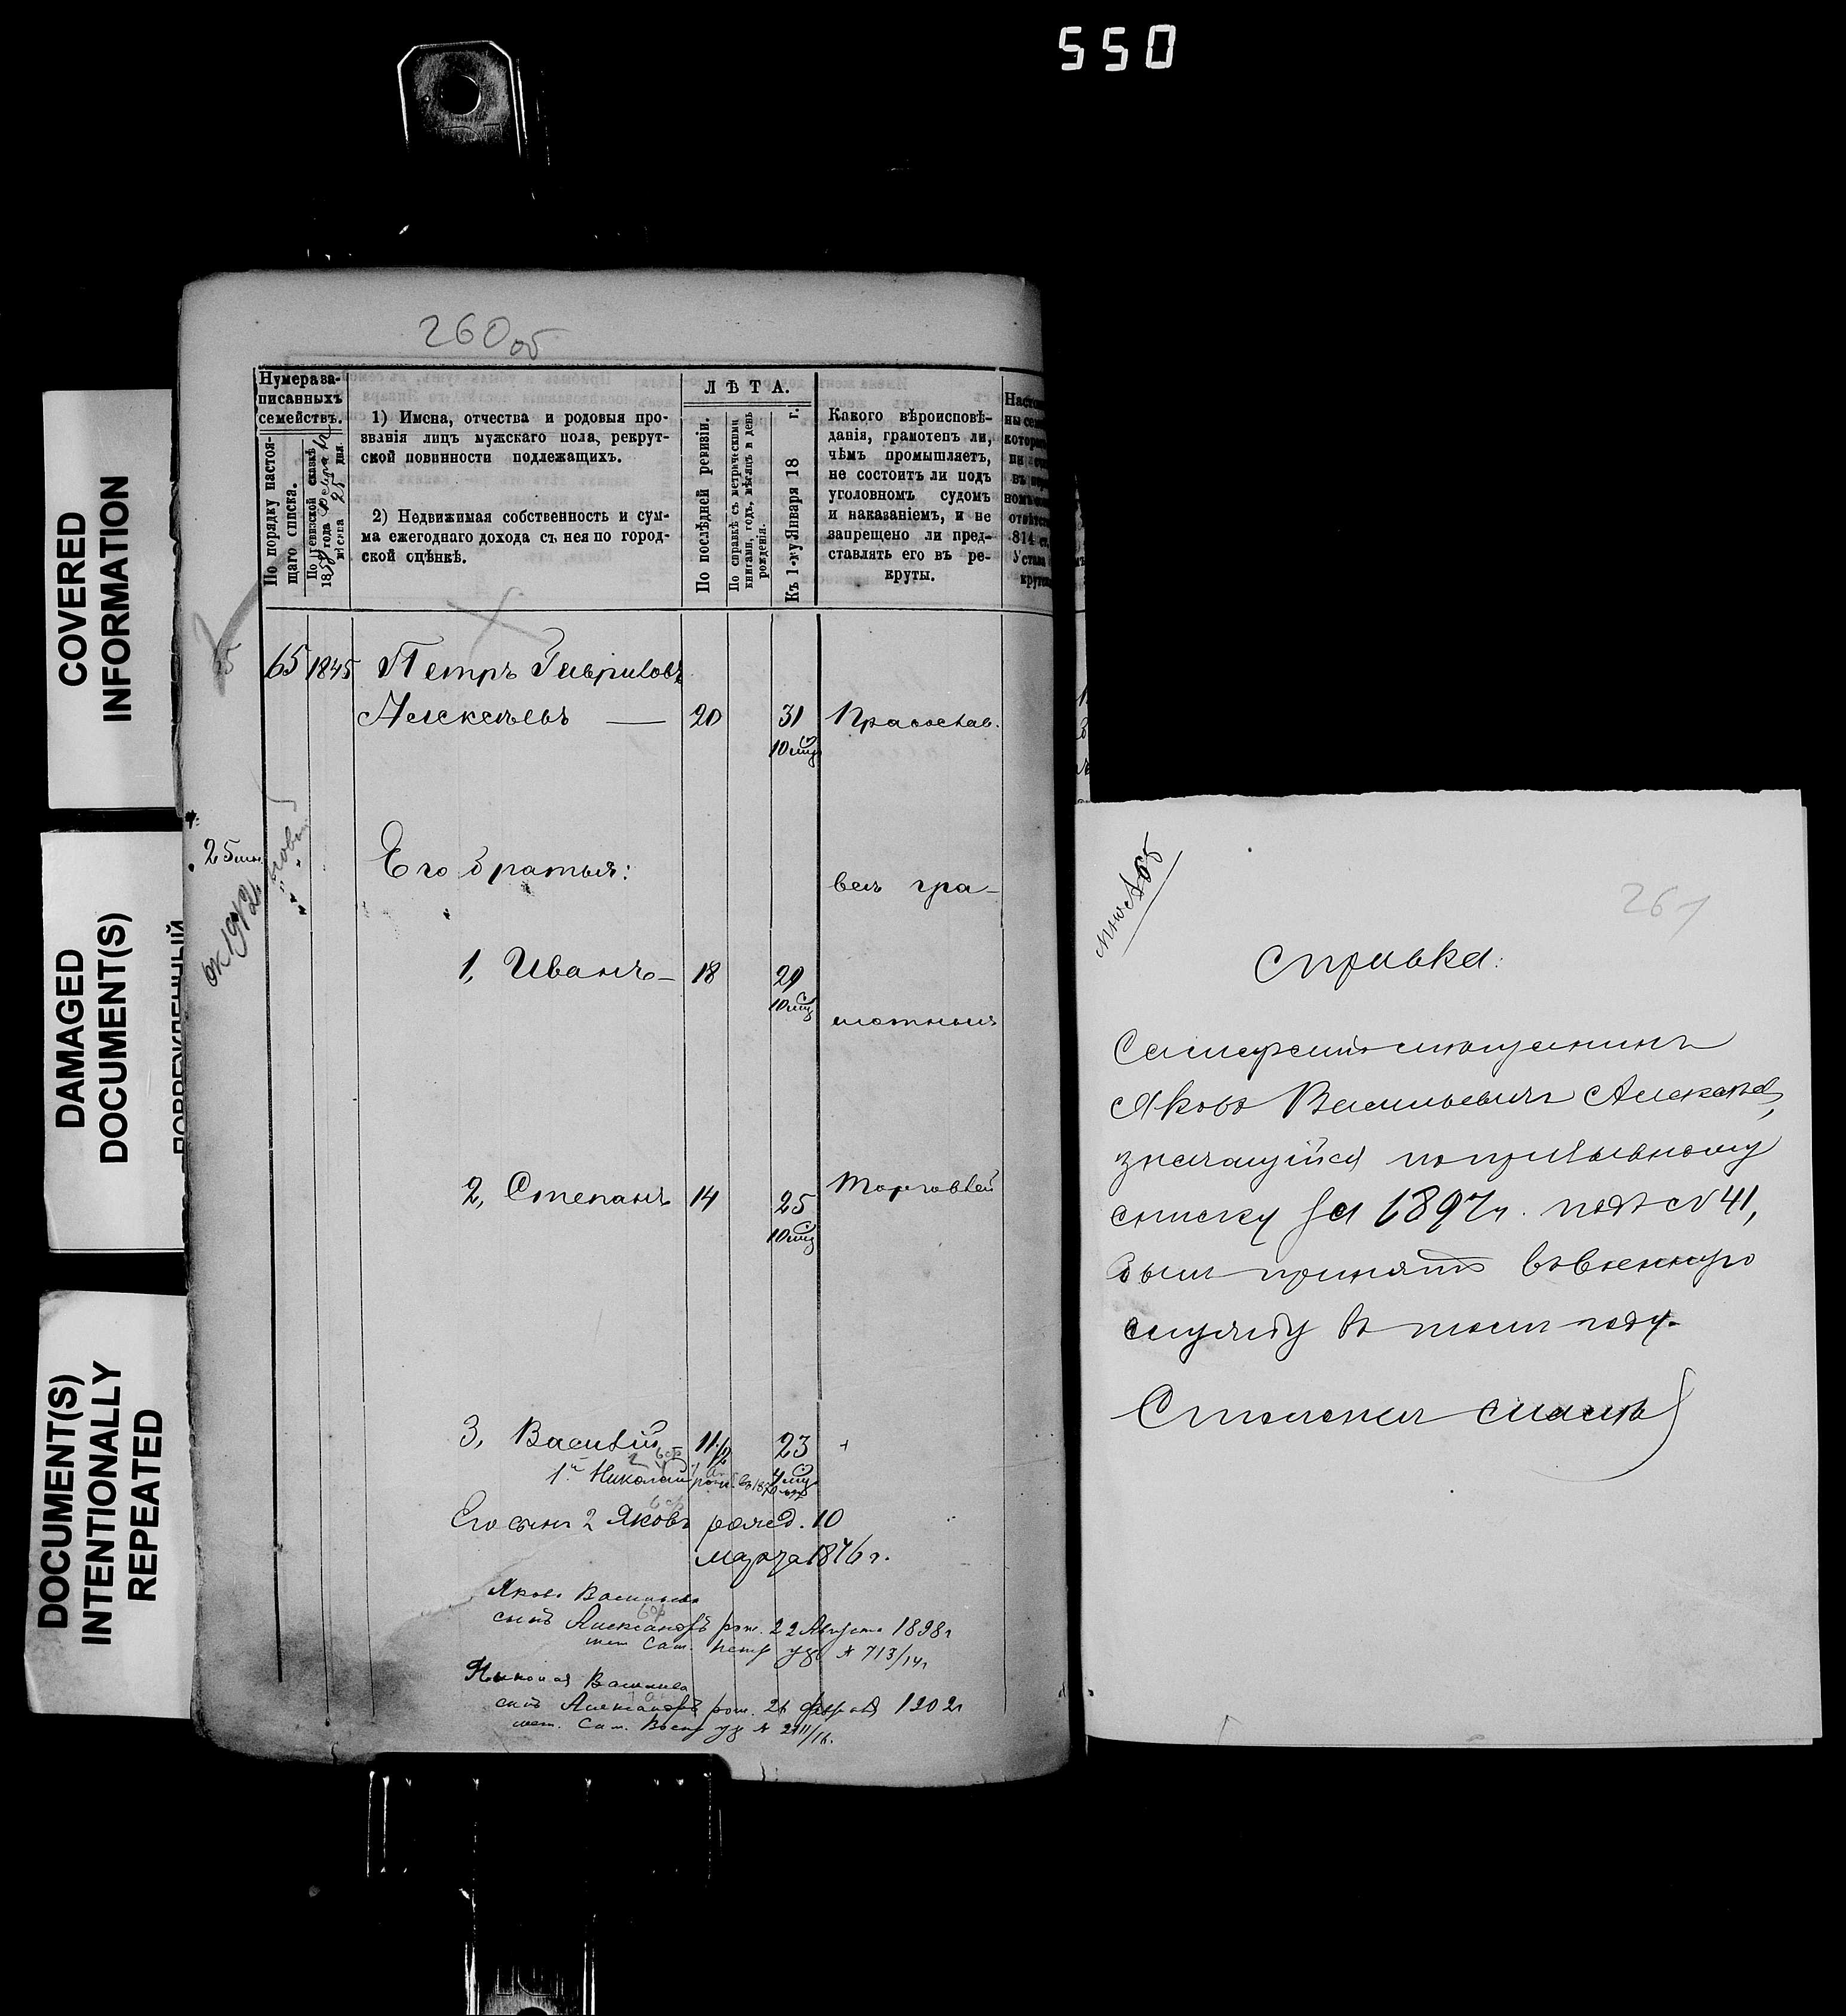 550
COVERED
INFORMATION
DAMAGED
DOCUMENT(S)
DOCUMENT(S)
INTENTIONALLY
REPEATED
260 об
Нумера за-
писанныхъ
семействъ.
По порядку настоя-
щаго списка.
По ревизской сказкѣ
1858 года
мѣсяца 25 дня.
1) Имена, отчества и родовыя про-
званія лицъ мужскаго пола, рекрут-
ской повинности подлежащихъ.
2) Недвижимая собственность и сум-
ма ежегоднаго дохода съ нея по город-
ской оцѣнкѣ.
ЛѢТА.
По послѣдней ревизіи.
По справкѣ съ метрическими
книгами, годъ, мѣсяцъ и день
рожденія.
Къ 1-му Января 18 г.
Какого вѣроисповѣ-
данія, грамотенъ ли,
чѣмъ промышляетъ,
не состоитъ ли подъ
уголовномъ судомъ
и наказаніемъ, и не
запрещено ли пред-
ставлять его въ ре-
круты.
65 1845 Петръ Гавриловъ
Алексѣевъ — 20 31 Православ.
10 мѣс
25
Его братья:
вел гра-
1, Иванъ - 18 29
10 мѣс
мотный
2, Степанъ 14 25 торговлей
10 мѣс
3, Василій 11 23
1й Николай
Его сынъ 2 Яковъ рожд. 10
марта 1876 г.
Якова Васильева
сынъ Александръ рож. 22 Августа 1898 г
мет Сам. уз № 713/14 г
Николая Васильева
сынъ Александръ рож. 26 февраля 1902 г
мет. Сам. уз №
261
Справка:
Самарскій мѣщанинъ
Яковъ Васильевичъ Алексѣевъ,
значащійся по призывному
списку за 1897 г. подъ № 41,
былъ принятъ въ военную
службу въ томъ году.